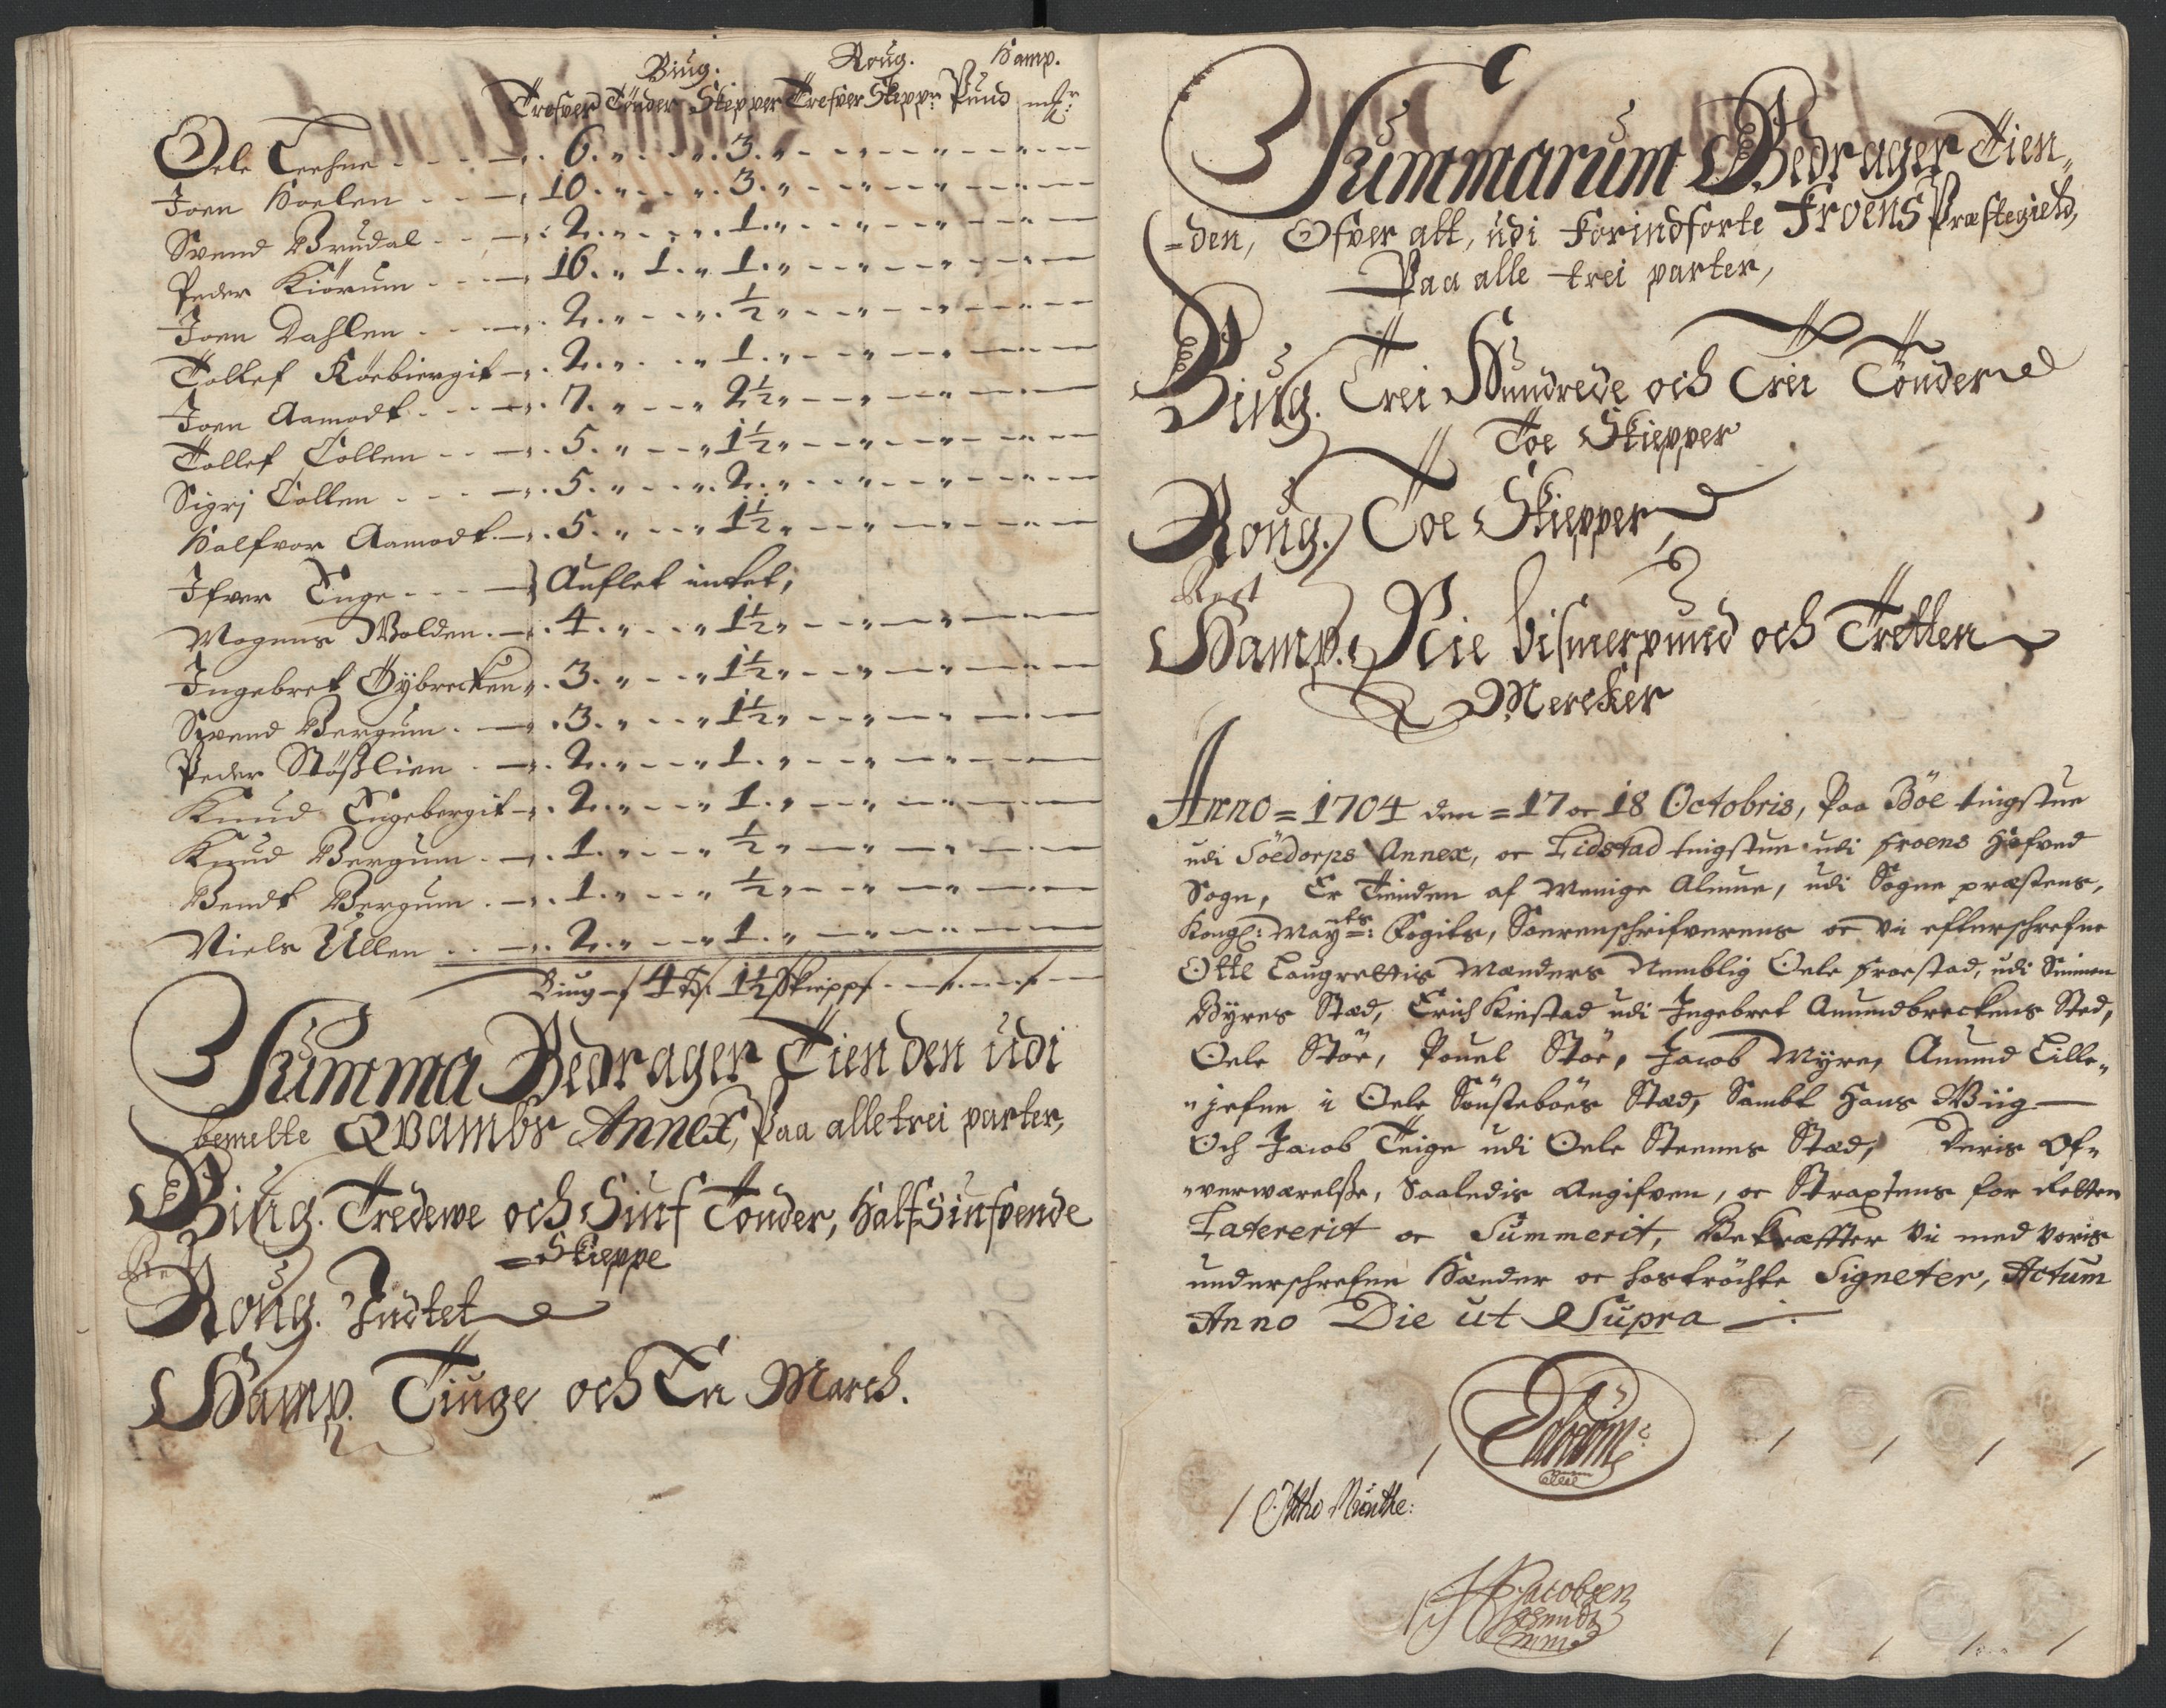 Biug. Roug. Hamp.
Trefver Tönder Skepper Trefver Skepp: Pund mk:
Oele Teehne - - - 6. „ - - „ 3. „
Joen Hoelen - - - 10. „ - - „ 3. „
Svend Brudal - - 2. „ - - „ 1. „
Peder Kiörum - - - 16. „ 1. „ 1. „
Joen Dahlen - - - 2. „ - - „ ½ „
Tollef Röebiergit - 2. „ - - „ 1. „
Joen Aamodt - - - 7. „ - - „ 2½ „
Tollef Lollen - - - 5. „ - - „ 1½ „
Sigrj Lollen - - - 5. „ - - „ 2. „
Halfvor Aamodt - 5. „ - - „ 1½ „
Ifver Enge - - - Auflet intet,
Mogens Wolden - 4. „ - - „ 1½ „
Ingebret Öybrecken „ 3. „ - - „ 1½ „
Svend Bergum - 3. „ - - „ 1½ „
Peder Stößlien - 2. „ - - „ 1. „
Knud Engebergit - 2. „ - - „ 1. „
Knud Bergum - 1. „ - - „ ½ „
Bendt Bergum - 1. „ - - „ ½ „
Niels Ullen - - 2. „ - - „ 1. „
Biug - 4 Td 1½ Skiepp
Summa Bedrager Tienden udi
bemelte Qvambs Annex, Paa alle trei parter,
Biug. Tredewe och Siuf Tönder, Half Siufvende
= Skieppe
Roug. Indtet
Hamp. Tiuge och En March.
Summarum Bedrager Tien„
=den, Ofver alt, udi Forindförte Froens Præstegield,
Paa alle trei parter,
Biug. Trei Hundrede och Trei Tönder
Toe Skiepper
Roug. Toe Skiepper
Hamp. Nie bismerpund och Tretten
Mercker
Anno = 1704 den = 17 oc 18 Octobris, Paa Böe tingstue
udi Söedorps Annex, oc Lidstad tingstue udi froens Hofved
Sogn, Er Tienden af Menige Almue, udi Sogne præstens,
Kongl: Mayts: Fogits, Sorenschrifverens oc vii efterschrefne
Otte Laugrettis Mænders Nemblig Oele froestad, udi Simen
Byres Stæd, Erich Kiestad udi Ingebret Amundbreckens Sted,
Oele Stöe, Pouel Stöe, Jacob Myre, Amund Lille„
„jefne i Oele Sönsteböes Stæd, Sambt Hans Wiig
Och Jacob Teige udi Oele Steenes Stæd, Deris Of„
„verwærelsße, Saaledis Angifven, oc Straxsens for Retten
Latererit oc Summerit, Bekræfter vii med voris
underschrefne Hænder oc hoströchte Signeter, Actum
Anno Die ut Supra
Otho Munthe:
Jacobsen